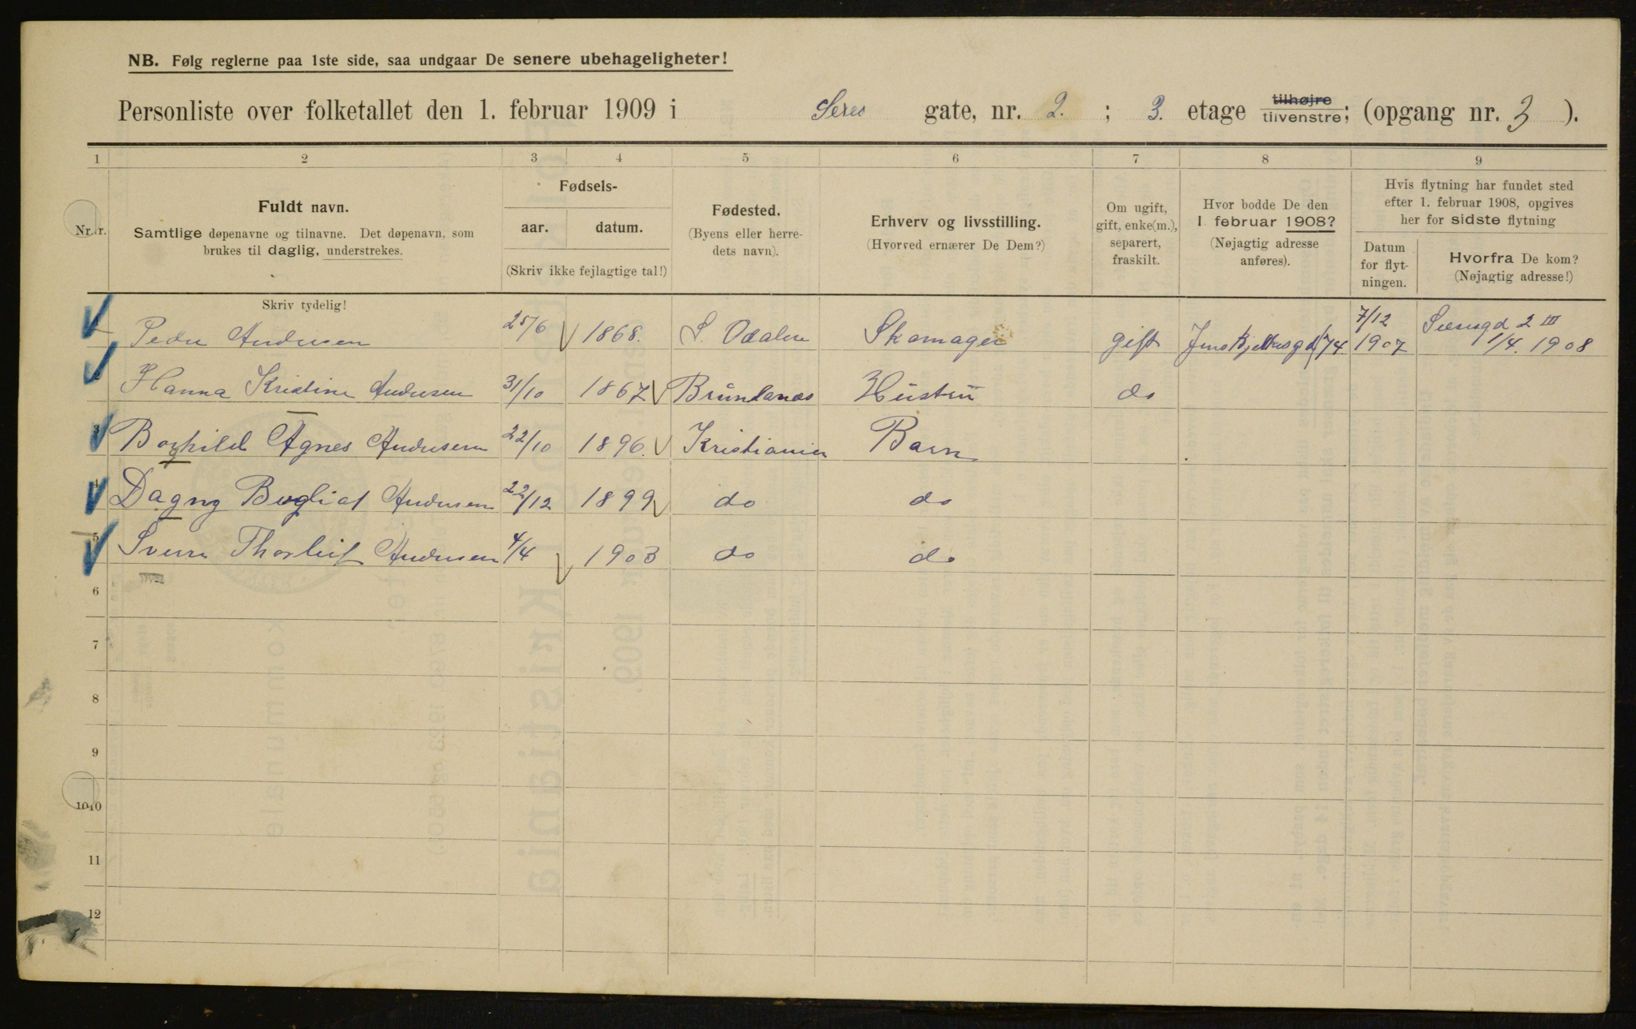 NB. Følg reglerne paa 1ste side, saa undgaar De senere ubehageligheter!
Personliste over folketallet den 1. februar 1909 i Seres gate, nr. 2. ; 3. etage tilhøjre tilvenstre; (opgang nr. 3 ).
1 2 3 4 5 6 7 8 9
Nr.
Fuldt navn.
Samtlige døpenavne og tilnavne. Det døpenavn, som
brukes til daglig, understrekes.
Fødsels-
aar. datum.
(Skriv ikke fejlagtige tal!)
Fødested.
(Byens eller herre-
dets navn).
Erhverv og livsstilling.
(Hvorved ernærer De Dem?)
Om ugift,
gift, enke(m.),
separert,
fraskilt.
Hvor bodde De den
1. februar 1908?
(Nøjagtig adresse
anføres).
Hvis flytning har fundet sted
efter 1. februar 1908, opgives
her for sidste flytning
Datum
for flyt-
ningen.
Hvorfra De kom?
(Nøjagtig adresse!)
Skriv tydelig!
Peder Andersen 25/6 1868. S. Odalen Skomager gift 7/12 1907 2 III 1/4. 1908
Hanna Kristine Andersen 31/10 1867 Brunlanæs Hustru do
Borghild Agnes Andersen 22/10 1896. Kristiania Barn
Dagny Andersen 22/12 1899 do do
5 Sverre Thorleif Andersen 4/4 1903 do do
6
7
8
9
10
11
12